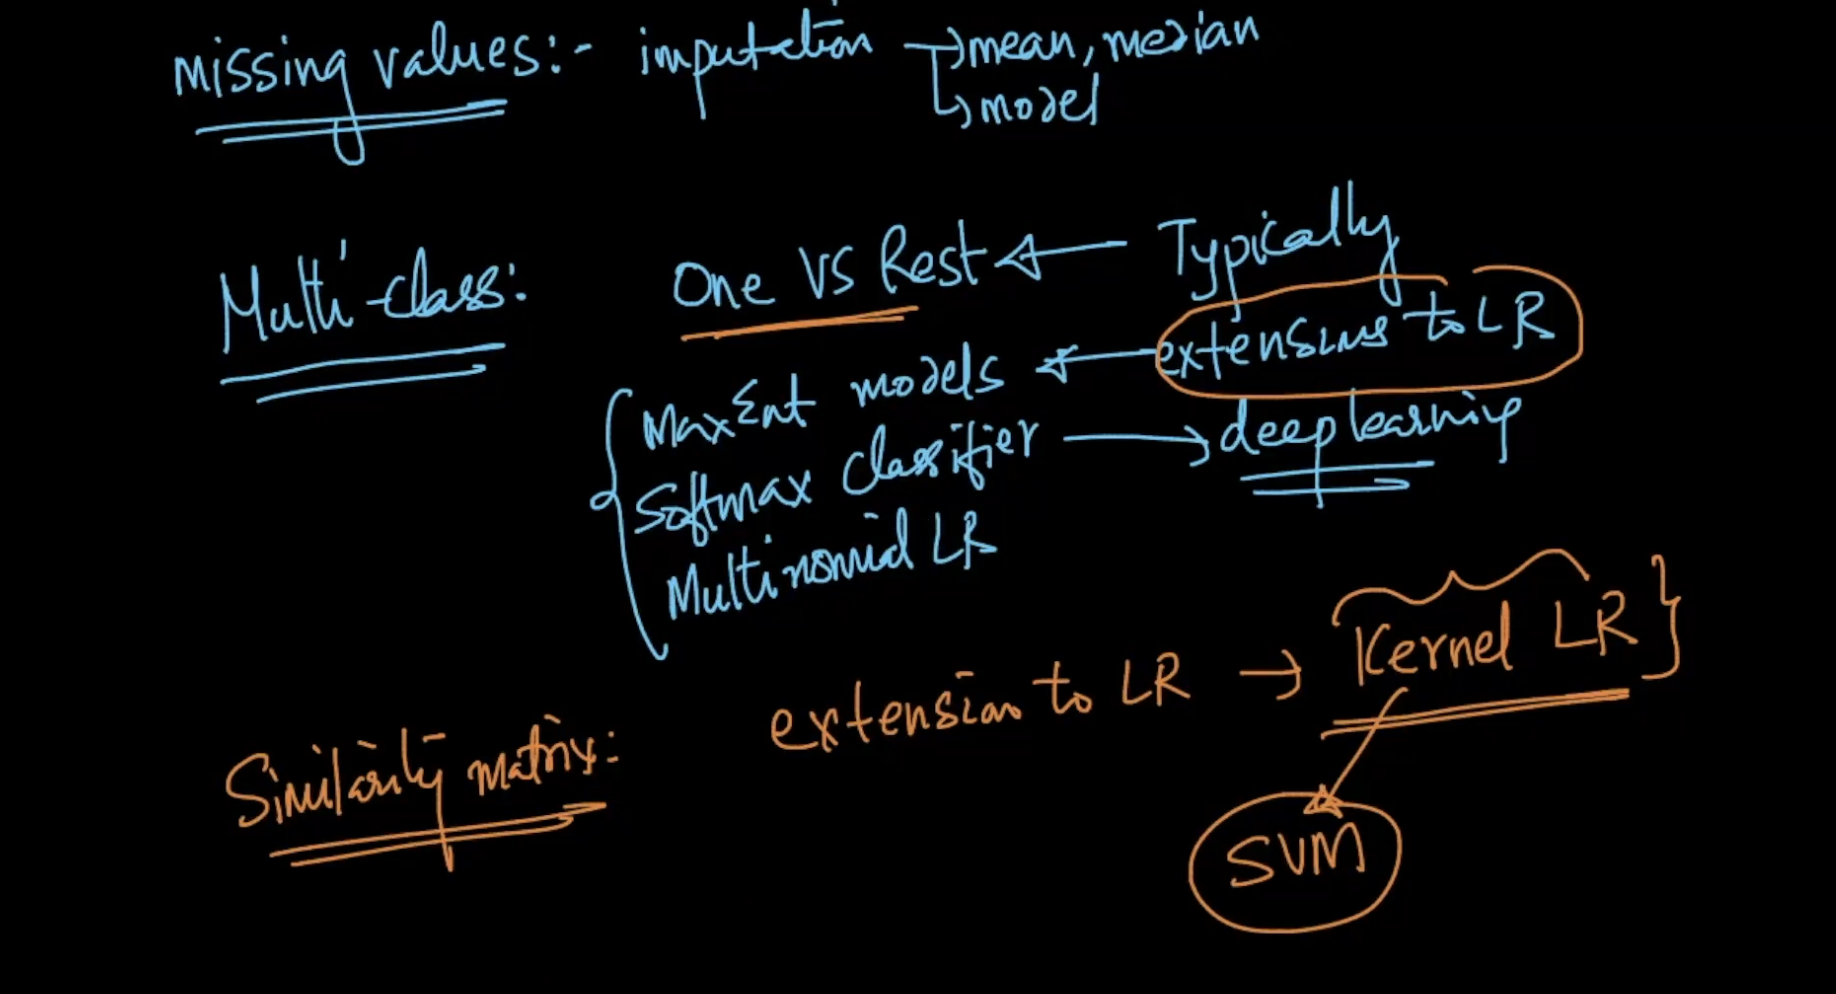 missing values:- imputation → mean, median
↳ model
Multi-class: One vs Rest ← Typically
MaxEnt models ← extensions to LR
Softmax Classifier → deep learning
Multinomial LR
Similarity matrix: extension to LR → Kernel LR }
SVM